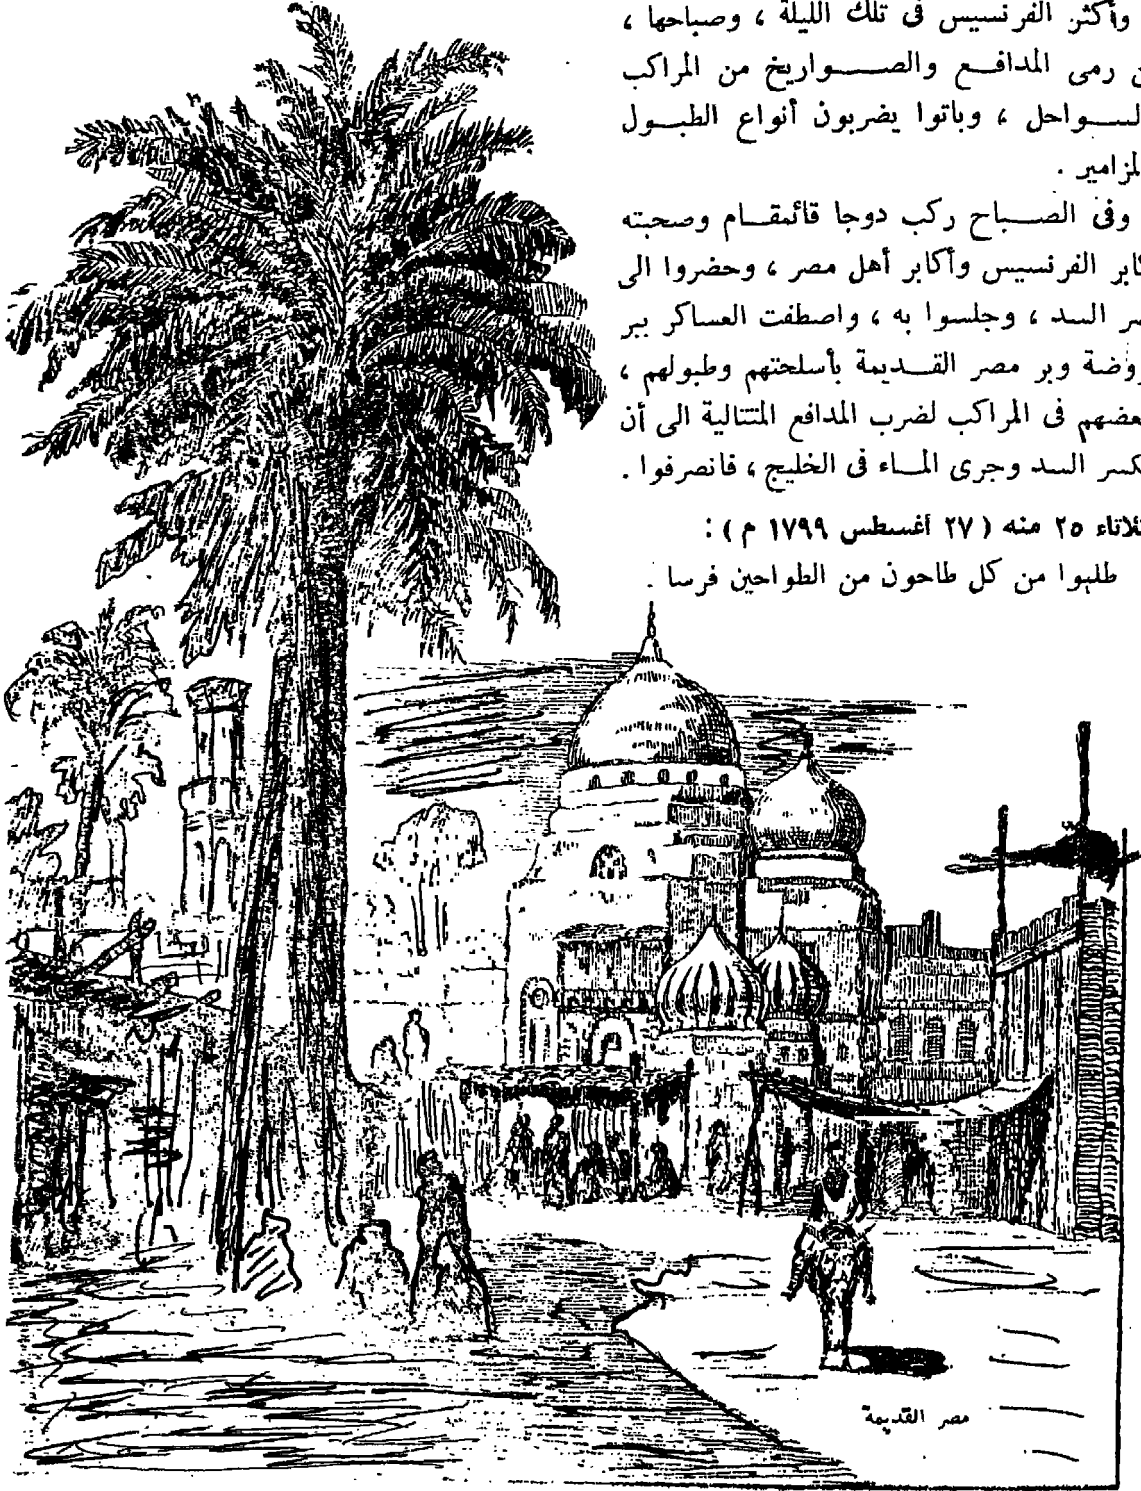 وأكثر الفرنسيس فى تلك الليلة ، وصباحها ،
رمى المدافع والصواريخ من المراكب
ـسواحل ، وباتوا يضربون أنواع الطبول
ـلمزامير .
وفى الصباح ركب دوجا قائمقام وصحبته
ـكابر الفرنسيس وأكابر أهل مصر ، وحضروا الى
ـر السد ، وجلسوا به ، واصطفت العساكر ببر
ـروضة وبر مصر القديمة بأسلحتهم وطبولهم ،
ـعضهم فى المراكب لضرب المدافع المتتالية الى أن
ـكسر السد وجرى الماء فى الخليج ، فانصرفوا .
ـثلاثاء ٢٥ منه ( ٢٧ أغسطس ١٧٩٩ م ) :
طلبوا من كل طاحون من الطواحين فرسا .
مصر القديمة